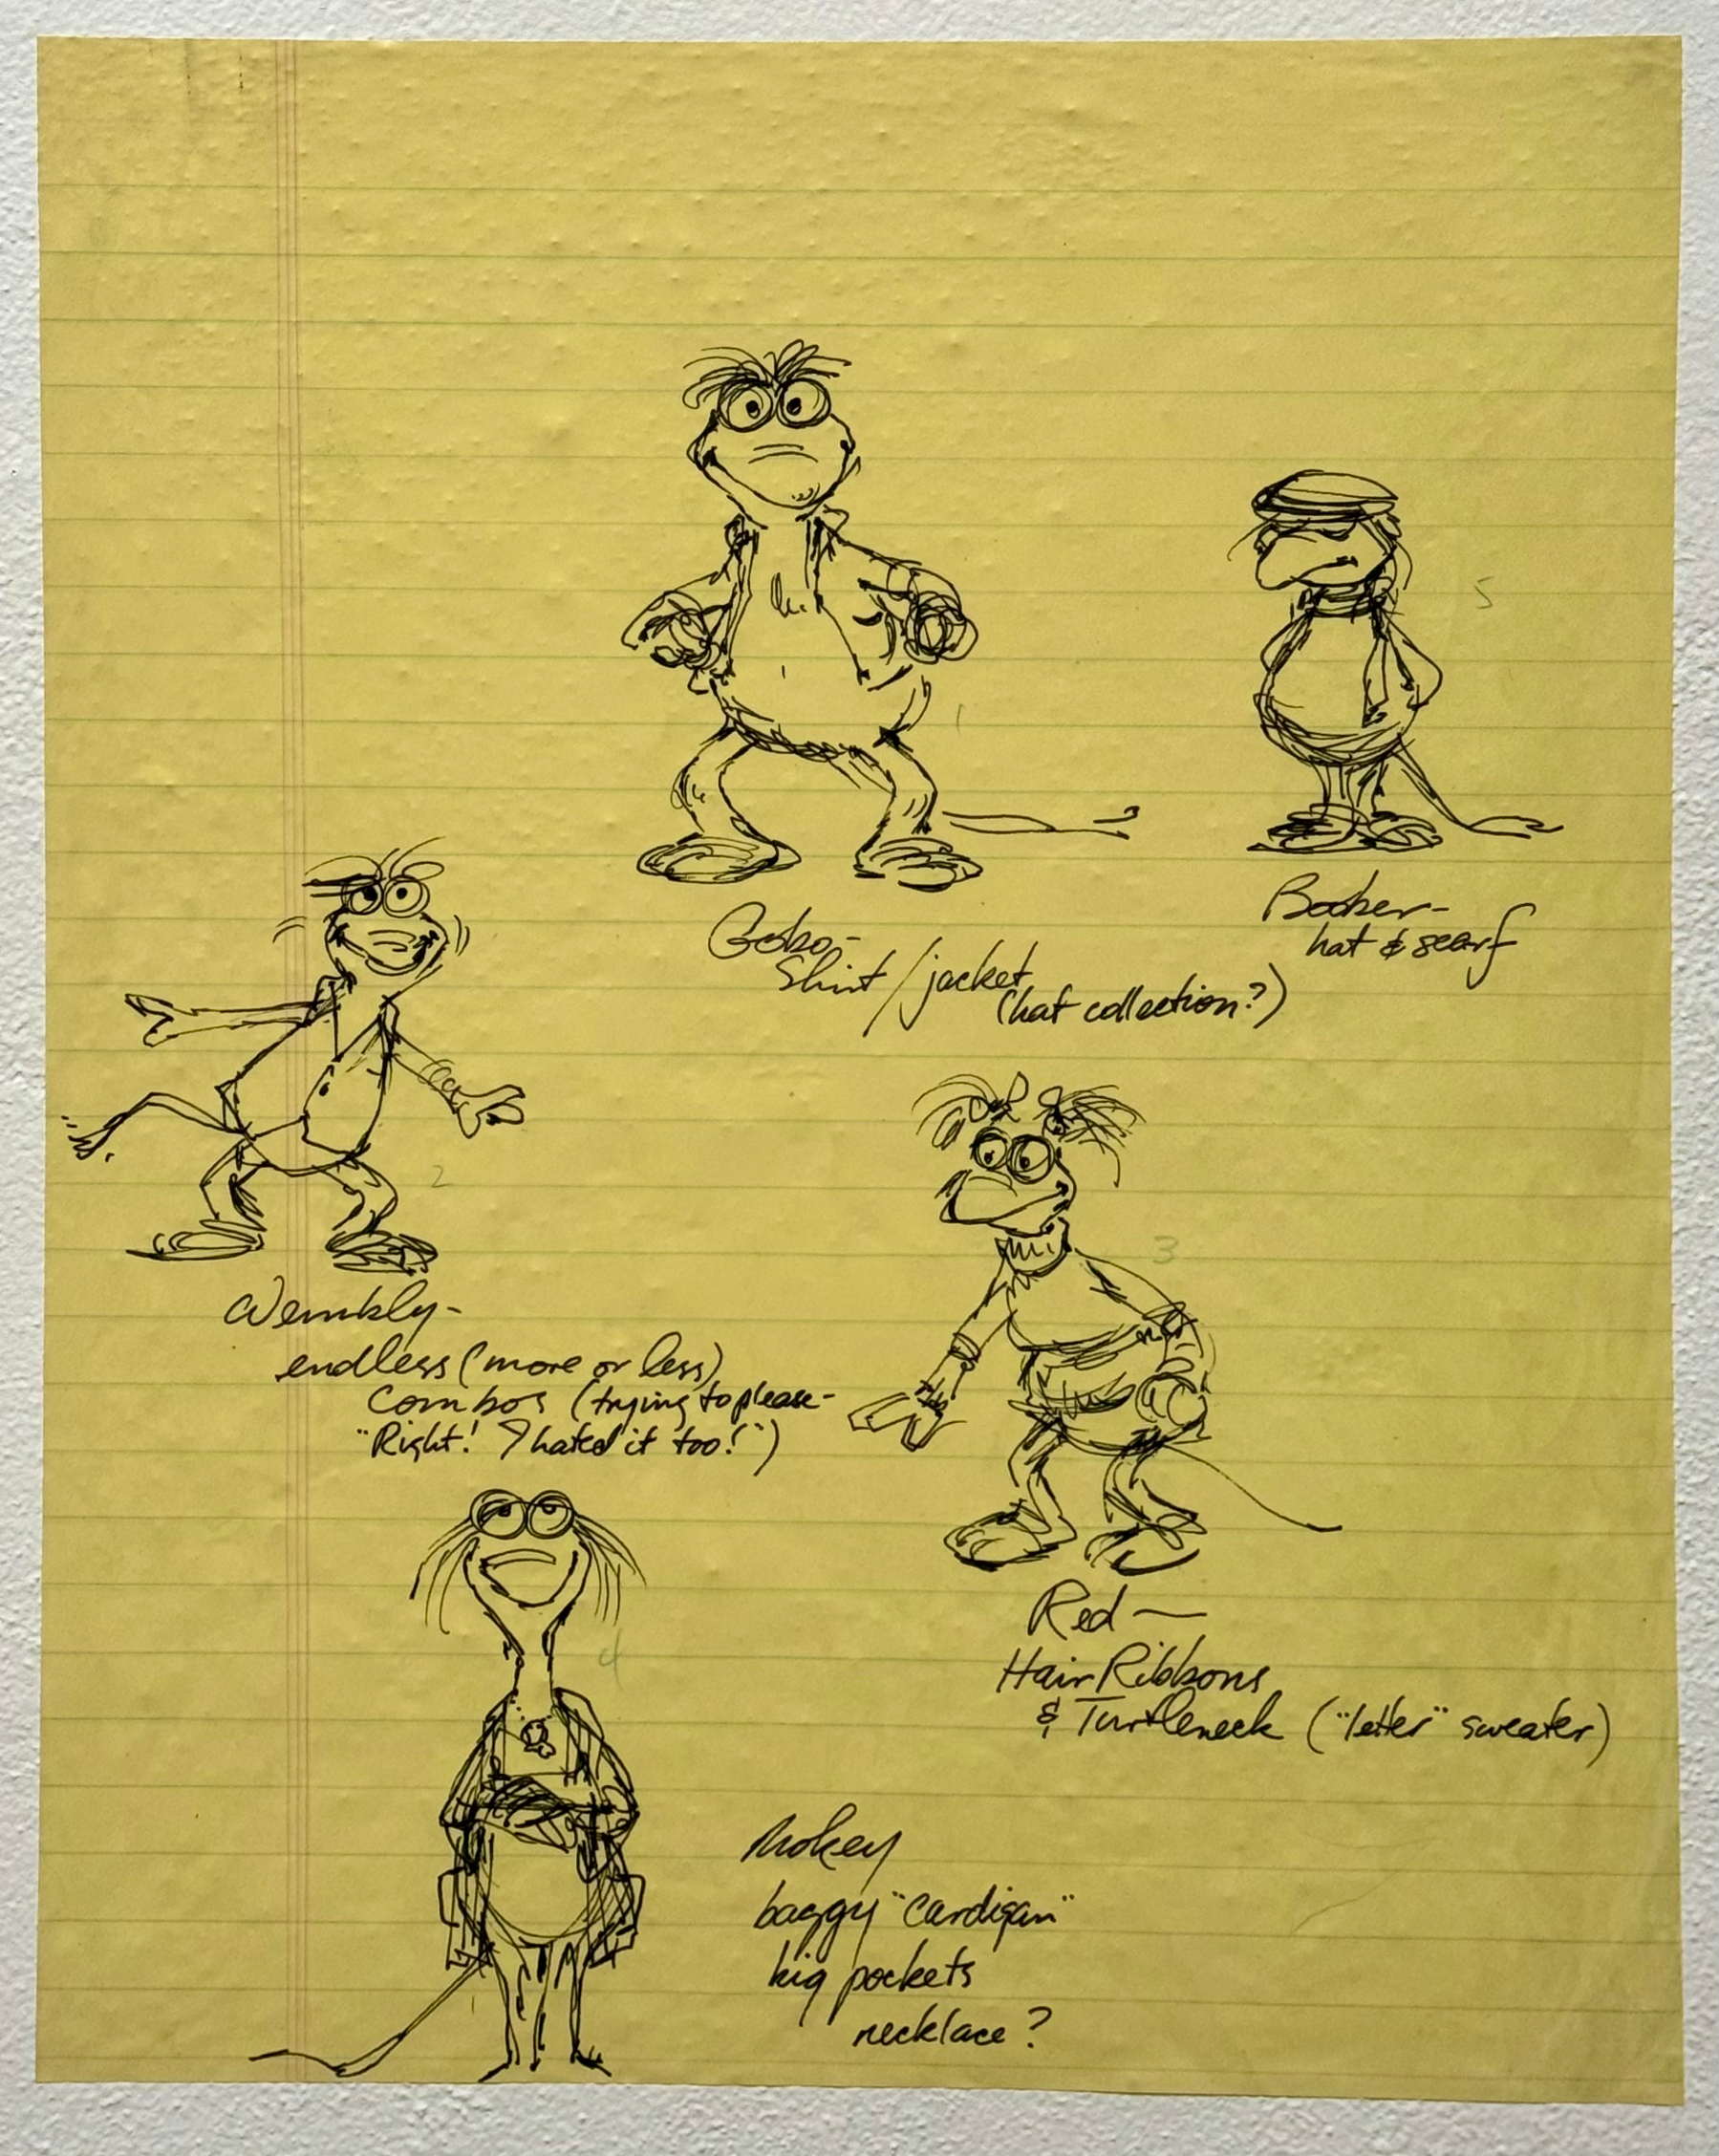 1
5
Gobo-
Shirt/jacket
(hat collection?)
Boober-
hat & scarf
2
Wembly-
endless (more or less)
combos (trying to please-
"Right! I hated it too!")
3
Red—
Hair Ribbons
& Turtleneck ("letter" sweater)
4
Mokey
baggy "cardigan"
big pockets
necklace?